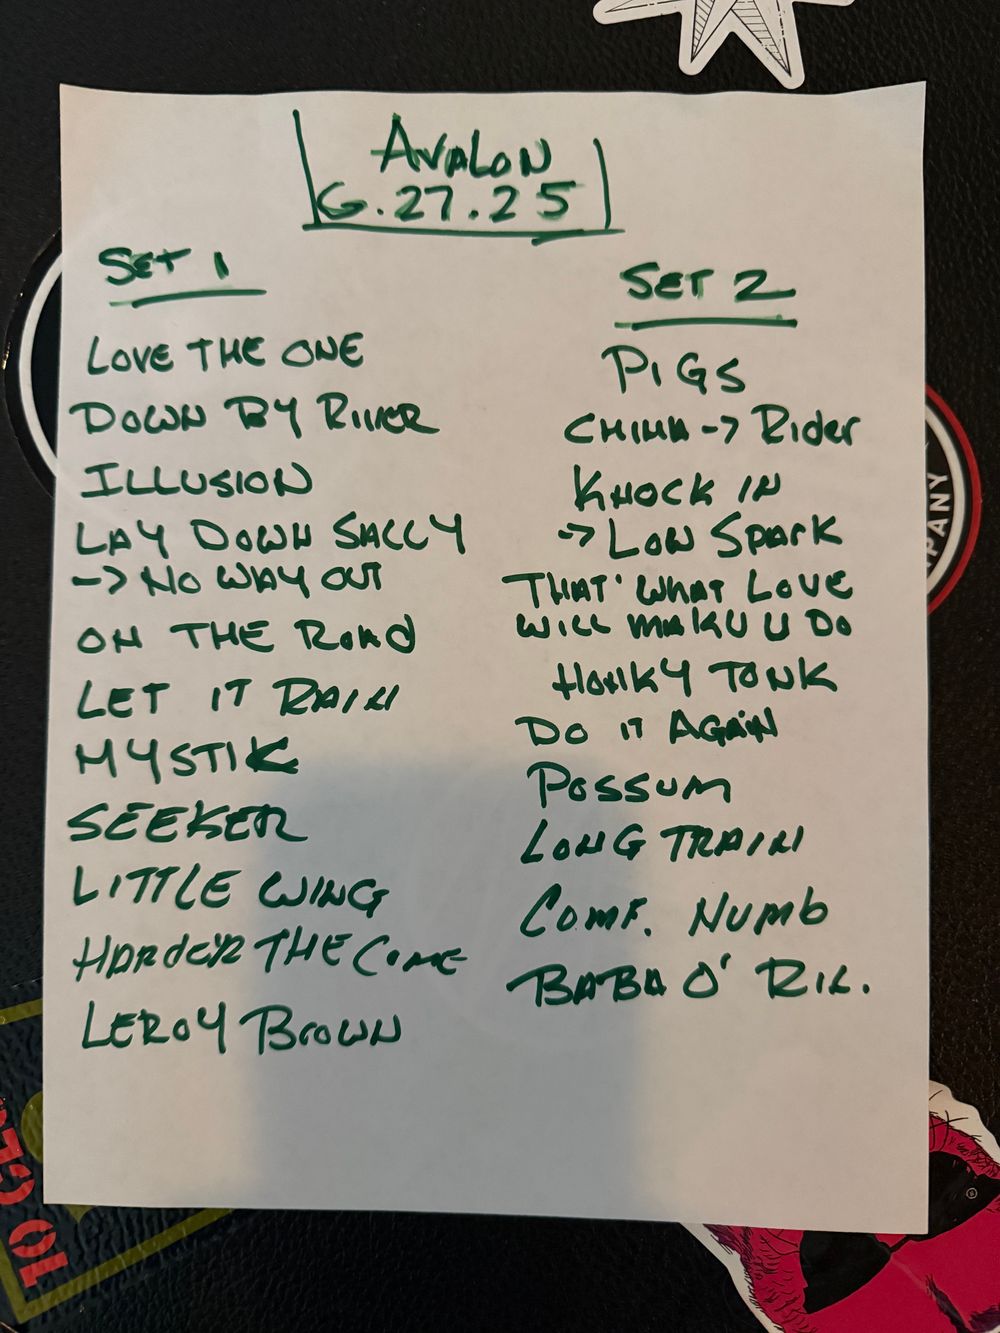 AVALON
6.27.25
SET 1
LOVE THE ONE
DOWN BY RIVER
ILLUSION
LAY DOWN SALLY
-> NO WAY OUT
ON THE ROAD
LET IT RAIN
MYSTIK
SEEKER
LITTLE WING
HARDER THE COME
LEROY BROWN
SET 2
PIGS
CHINA -> Rider
KNOCK IN
-> LOW SPARK
THAT' WHAT LOVE
WILL MAKU U DO
HONKY TONK
DO IT AGAIN
POSSUM
LONG TRAIN
COMF. NUMb
BABA O' RIL.
PANY
TO